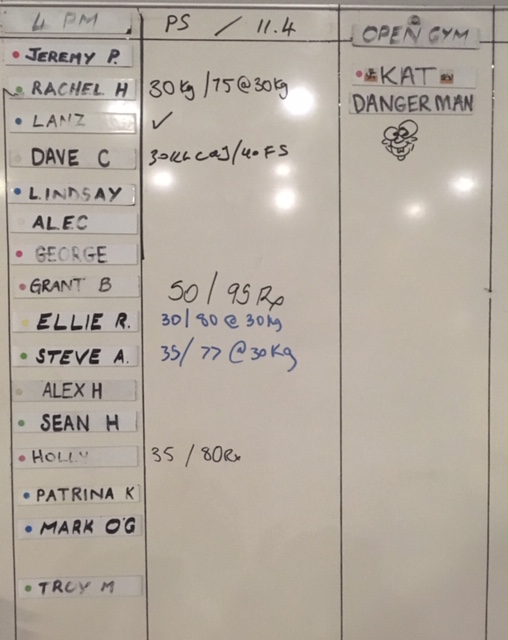 4 PM PS / 11.4 OPEN GYM
JEREMY P.
RACHEL H 30kg/75@30kg KAT
LANZ ✓ DANGERMAN
DAVE C /40FS
LINDSAY
ALEC
GEORGE
GRANT B 50/95Rx
ELLIE R. 30/80@30kg
STEVE A. 35/77@30Kg
ALEX H
SEAN H
HOLLY 35/80Rx
PATRINA K
MARK O'G
TROY M